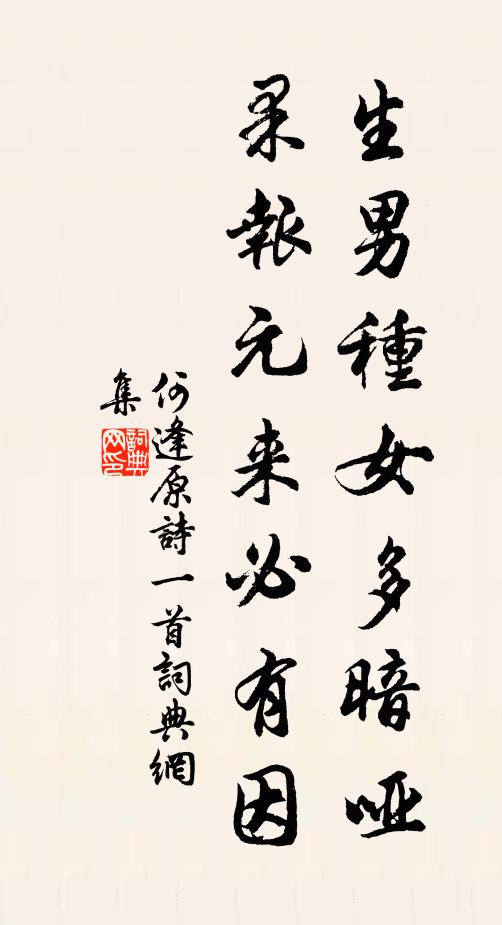 生男種女多暗啞
果報元来必有因
何逢原詩一首詞典網
集
詞典
网印